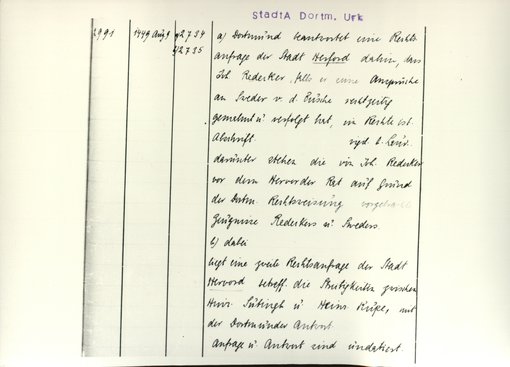 StadtA Dortm. Urk
2991 1449 Aug 9 42734 a) Dortmund beantwortet eine Rechts-
42735 anfrage der Stadt Herford dahin, dass
Joh. Redecker, falls er seine Ansprüche
an Sweder v. d. Büsche rechtzeitig
gemahnt u. verfolgt hat, im Rechte ist.
Abschrift.
darunter stehen die von Joh. Redecker
vor dem Hervorder Rat auf Grund
der Dortm. Rechtsweisung
Zeugnisse Redeckers u. Sweders.
b) dabei
liegt eine zweite Rechtsanfrage der Stadt
Hervord betreff. die Streitigkeiten zwischen
Heinr. u. Heinr. mit
der Dortmunder Antwort.
Anfrage u. Antwort sind undatiert.